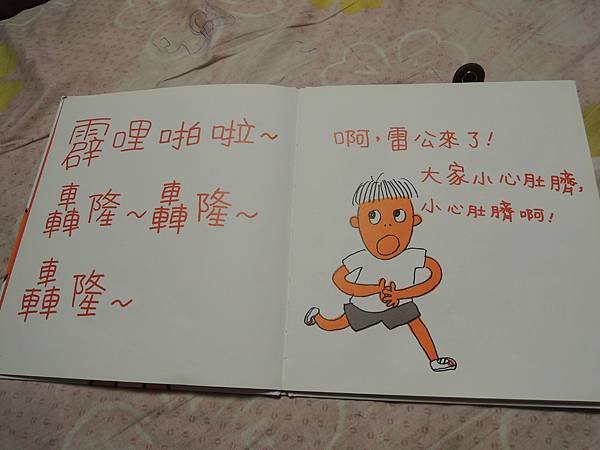 霹哩啪啦~
轟隆~轟隆~
轟隆~
啊，雷公來了！
大家小心肚臍，
小心肚臍啊！